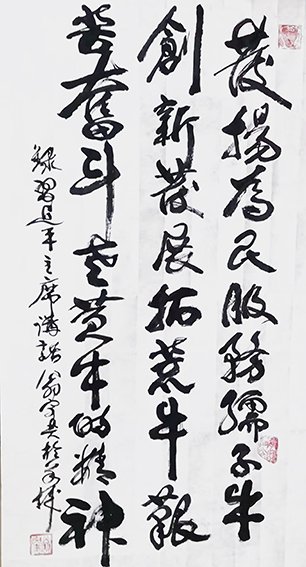 發揚為民服務孺子牛
創新發展拓荒牛艱
苦奮斗老黄牛的精神
錄習近平主席講話 翁 於羊城